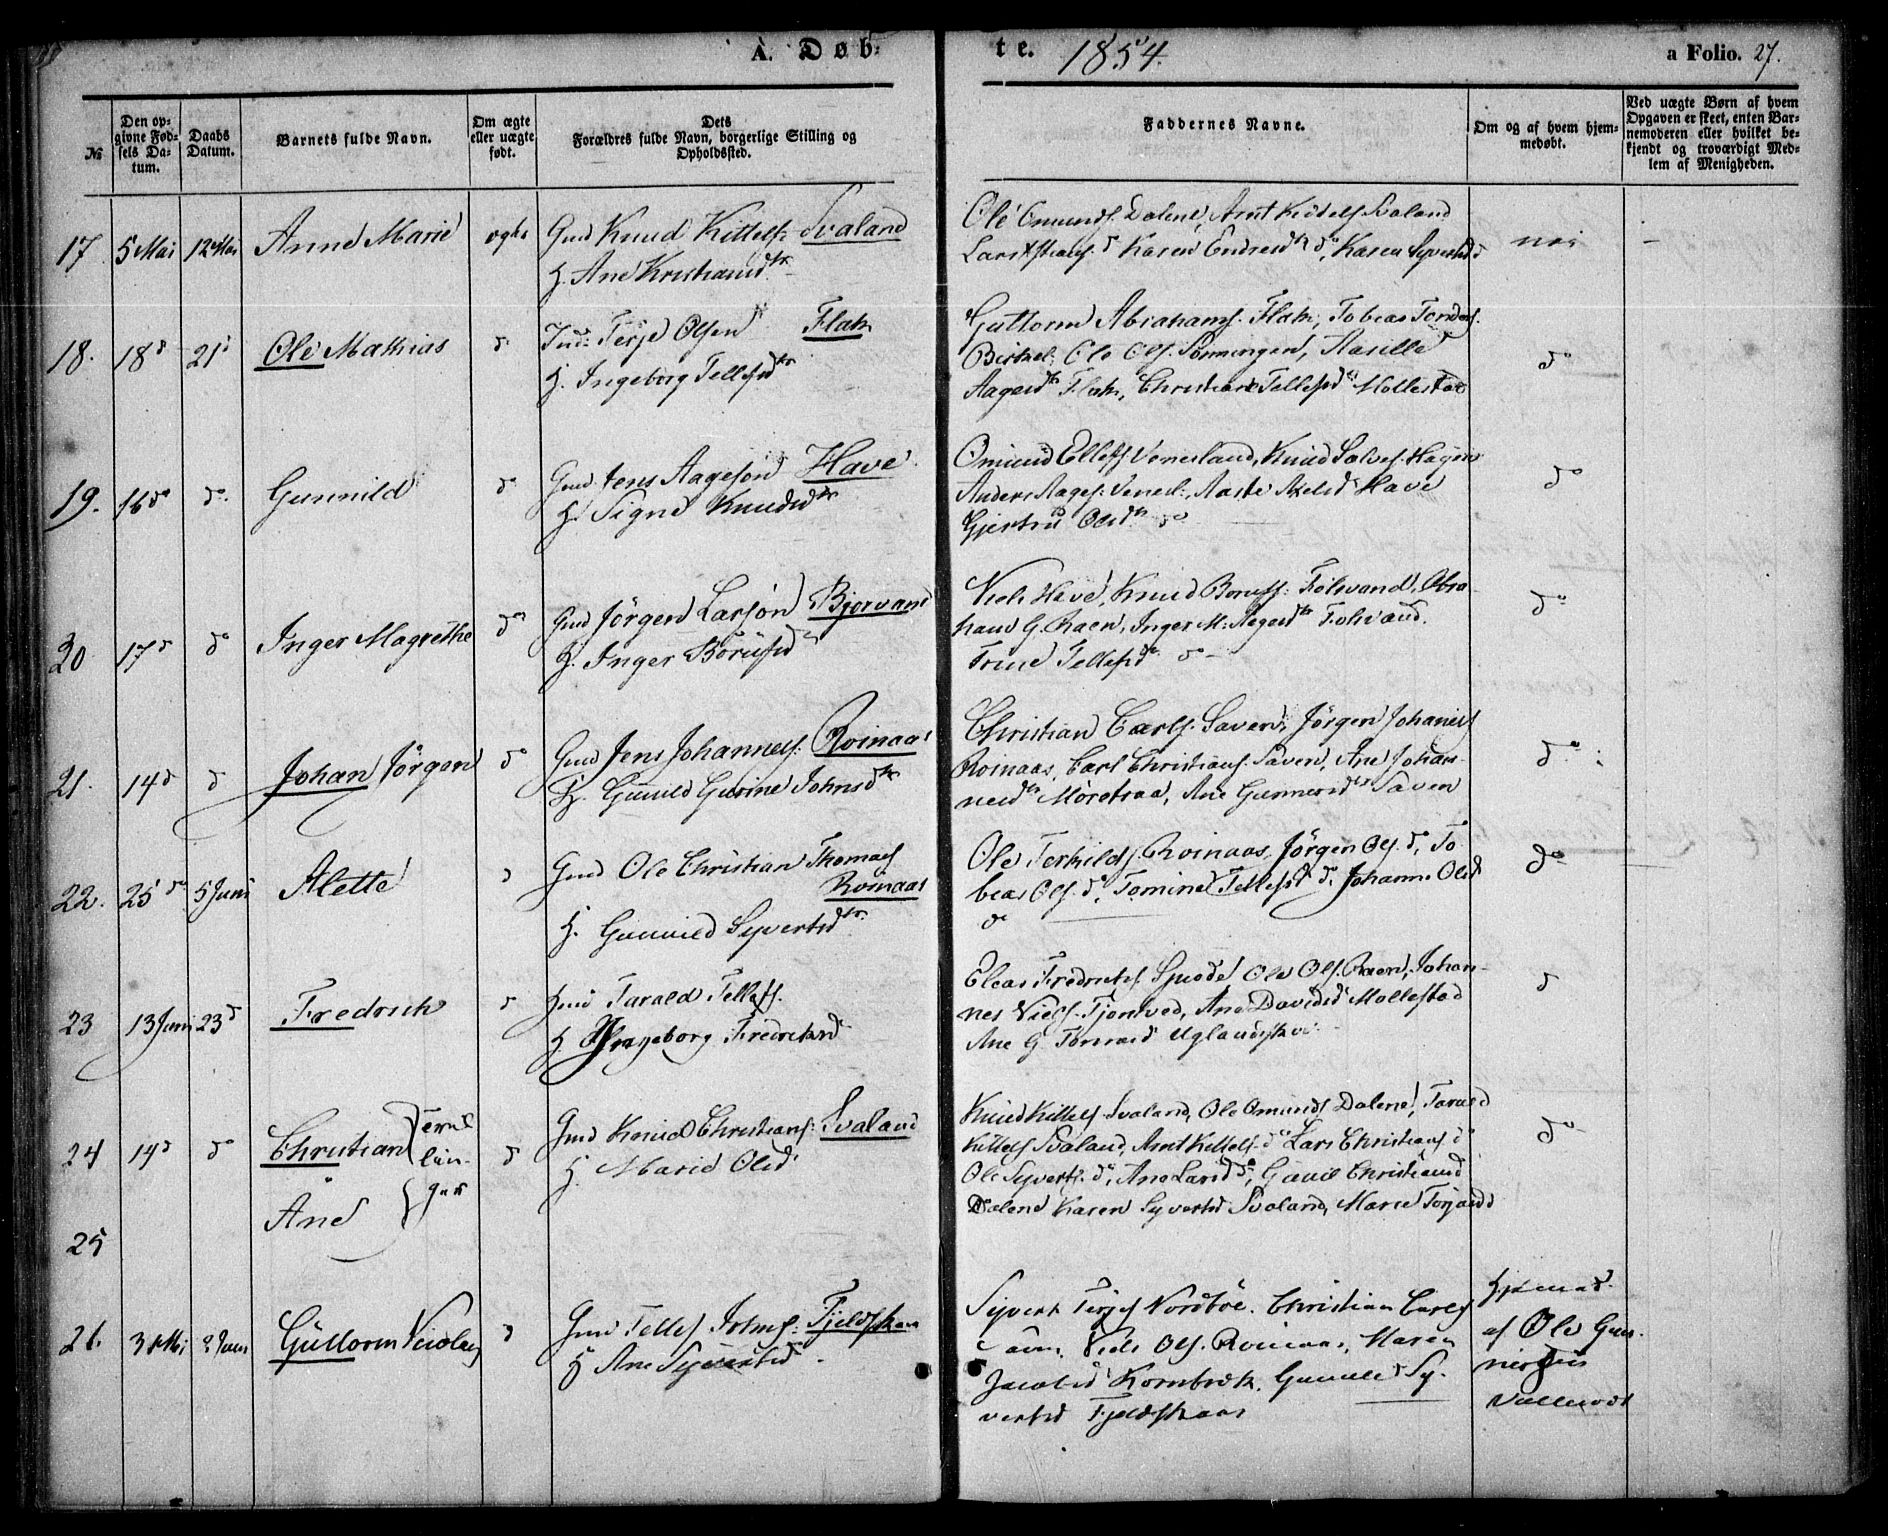 A. Døb-
te. 1854.
a Folio. 27.
№
Den op-
givne Fød-
sels Da-
tum.
Daabs
Datum.
Barnets fulde Navn.
Om ægte
eller uægte
født.
Dets
Forældres fulde Navn, borgerlige Stilling og
Opholdssted.
Faddernes Navne.
Om og af hvem hjem-
medøbt.
Ved uægte Børn af hvem
Opgaven er skeet, enten Bar-
nemoderen eller hvilket be-
kjendt og troværdigt Med-
lem af Menigheden.
17. 5 Mai 12 Mai Anne Marie ægte Gmd Knud Kittelf: Svaland
H. Ane Kristiansdtr
Ole Omundf. Dalene, Arnt Kittelf Svaland
Lars Xstianf. d Karen Endresdtr do, Karen Syvertsd d
nei —
18. 18 d 21 d Ole Mathias d Ind: Terje Olsen Flak
H. Ingeborg Tellefsdtr
Guttorm Abrahamf. Flak, Tobias
Birkel: Ole Olf. Aasille
Aagesdtr Flak, Christiane Tellefsdtr Mollestad
do
19. 16 do do Gunnild do Gmd Jens Aageson Have
H. Signe Knudsdtr
Omund Ellefs Veneland, Knud Salves. Hagen
Anders Aagef: Venel:, Aaste Axelsd Have
Gjertru Olsdtr do
do
20 17 d do Inger Magrethe do Gmd Jörgen Larson Bjorvand
H. Inger Börufsd
Niels Have, Knud Boruf: Folvand, Abra-
ham G. Raen, Inger M. Aagesdtr Folvand.
Trine Tellefsd do
do
21. 14 d d Johan Jörgen do Gmd Jens Johannesf. Roinaas
H. Gunild Gurine Johnsdtr
Christian Carlf. Saven, Jörgen Johanesf
Roinaas, Carl Christianf. Saven, Ane Johan-
nesdtr Möretraa, Ane Gunnersdtr Saven
do
22. 25 do 5 Juni Alette d Gmd Ole Christian Thomasf
Roinaas
H. Gunnild Syvertsdtr
Ole Terkildf. Roinaas, Jörgen Olf. do, To
beas Olf. do, Tomine Tellefsd do, Johanne Olsd
do
do
23 13 Juni 23 d Fredrich d Gmd Tarald Tellefs.
H Ingeborg Fredriksd
Eleas Fredrichs. Ole Olf. Raen, Johan-
nes Nielf. Tjomved, Ane Davidsd Mollestad
Ane G. Uglandsk
d
24 14 d do Christian d Gmd Knud Christianf: Svaland
Tvil
lin-
ger
H. Marie Olsd
25
Ane
Knud Kittelf Svaland, Ole Omundf Dalene, Tarald
Kittelf Svaland, Arnt Kittelf. do Lars Christianf do
Ole Syvertf. do, Ane Larsd do, Gunil Christiansd
Dalene Karen Syvertsd Svaland, Marie Torjusd
do
26. 31 Mai 2 Juni Guttorm Nicolay d Gmd Tellef Johnf: Fjeldskaar
H Ane Syvertsd
Syvert Terjes Nordböe. Christian Carlf
Saven, Niels Olf. Roinaas, Maren
Jacobsd Kornbrek, Gunnild Sy-
vertsd Fjeldskaar
Hjemed.
af Ole Gun-
Vallemoen